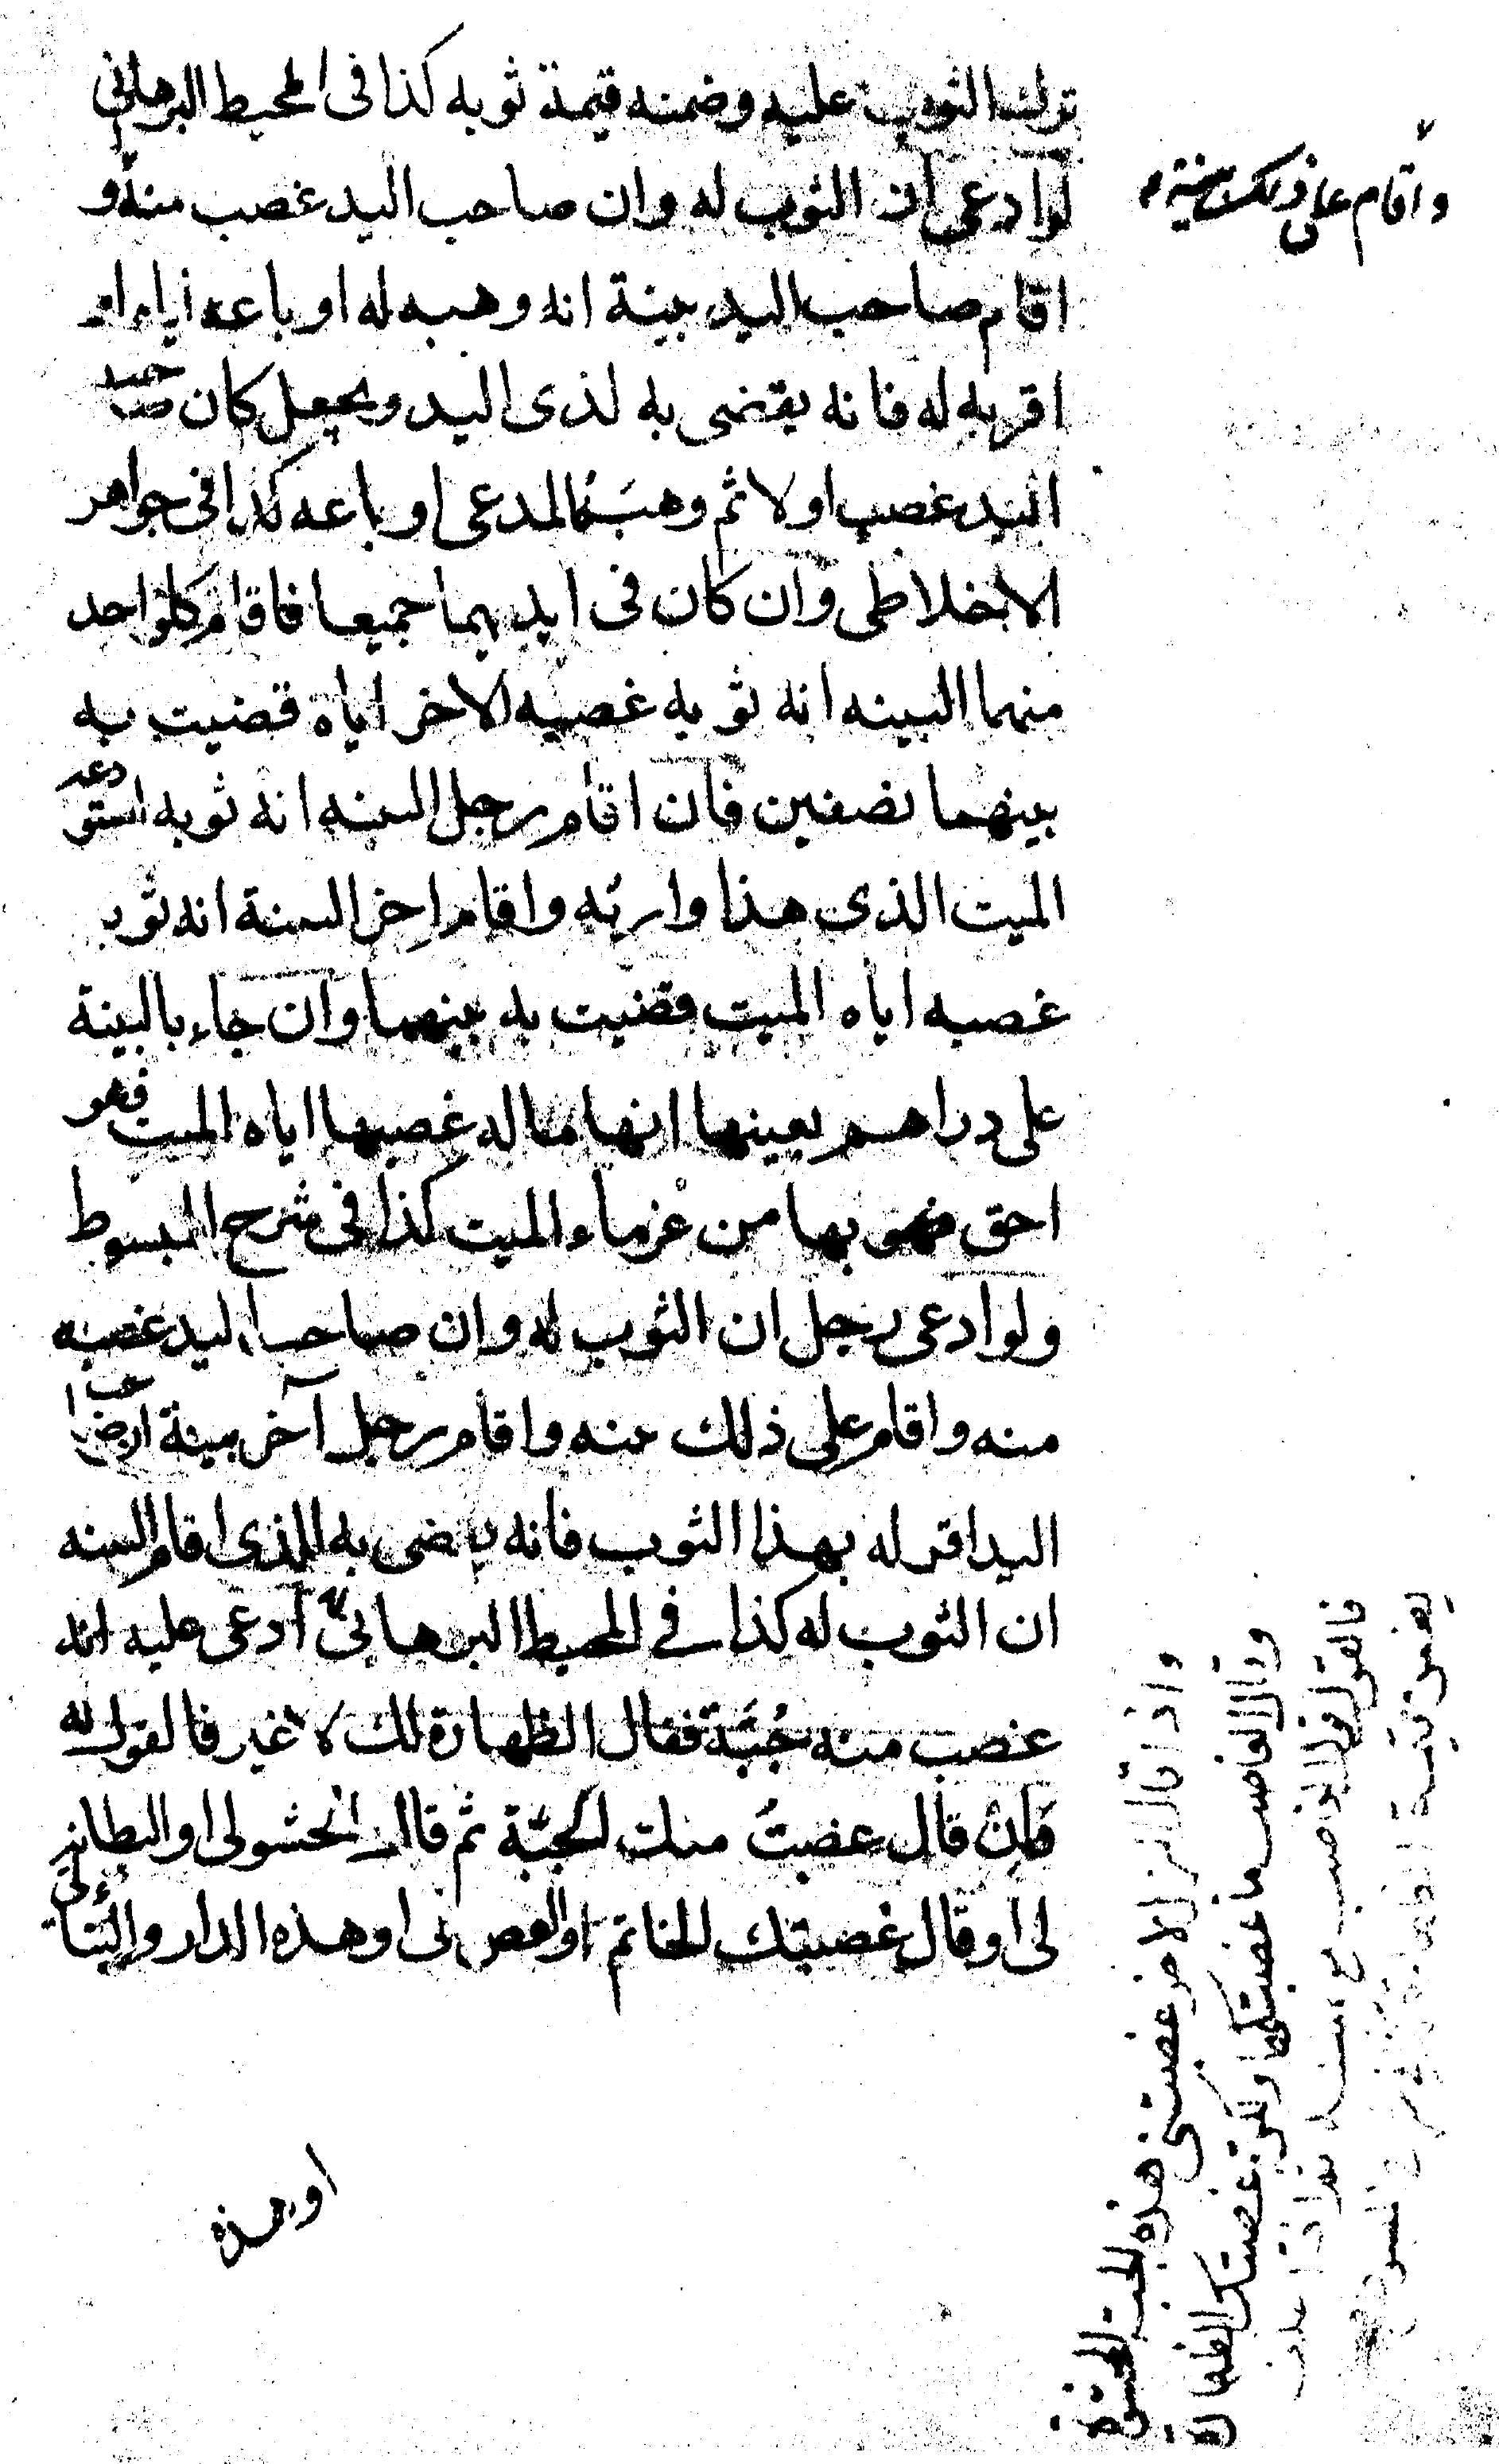 ترك الثوب عليه وضمنه قيمة ثوبه كذا فى المحيط البرهانى
لو ادعى ان الثوب له وان صاحب اليد غصب منه و
اقام صاحب اليد بينة انه وهبه له او باعه اياه او
اقر به له فانه يقضى به لذى اليد ويجعل كان صاحب
اليد غصب اولا ثم وهبه المدعى او باعه كذا فى جواهر
الاخلاطى وان كان فى ايديهما جميعا فاقام كل واحد
منهما البينه انه ثوبه غصبه الاخر اياه قضيت به
بينهما نصفين فان اقام رجل البينه انه ثوبه استودعه
الميت الذى هذا وارثه واقام اخر البينة انه ثوبه
غصبه اياه الميت قضيت به بينهما وان جاء بالبينة
على دراهم بعينها انها ماله غصبها اياه الميت فهو
احق بها من غرماء الميت كذا فى شرح المبسوط
ولو ادعى رجل ان الثوب له وان صاحب اليد غصبه
منه واقام على ذلك بينه واقام رجل آخر بينة ان صاحب
اليد اقر له بهذا الثوب فانه يقضى به للذى اقام البينه
ان الثوب له كذا في المحيط البرهانى ادعى عليه انه
غصب منه جُبَّة فقال الظهارة لك لا غير فالقول له
فان قال غصبتُ منك الجبّة ثم قال الحشو لى او البطانه
لى او قال غصبتك الخاتم او الفص لى او هذه الدار والبناء لى
او هذه
واقام على ذلك بينة
واذا قال الرجل لاخر غصبتنى هذه الجبة المحشوة
وقال الغاصب ما غصبتكها ولكن غصبتك الظهارة
فالقول قول الغاصب مع يمينه
يضمن قيمة الظهارة